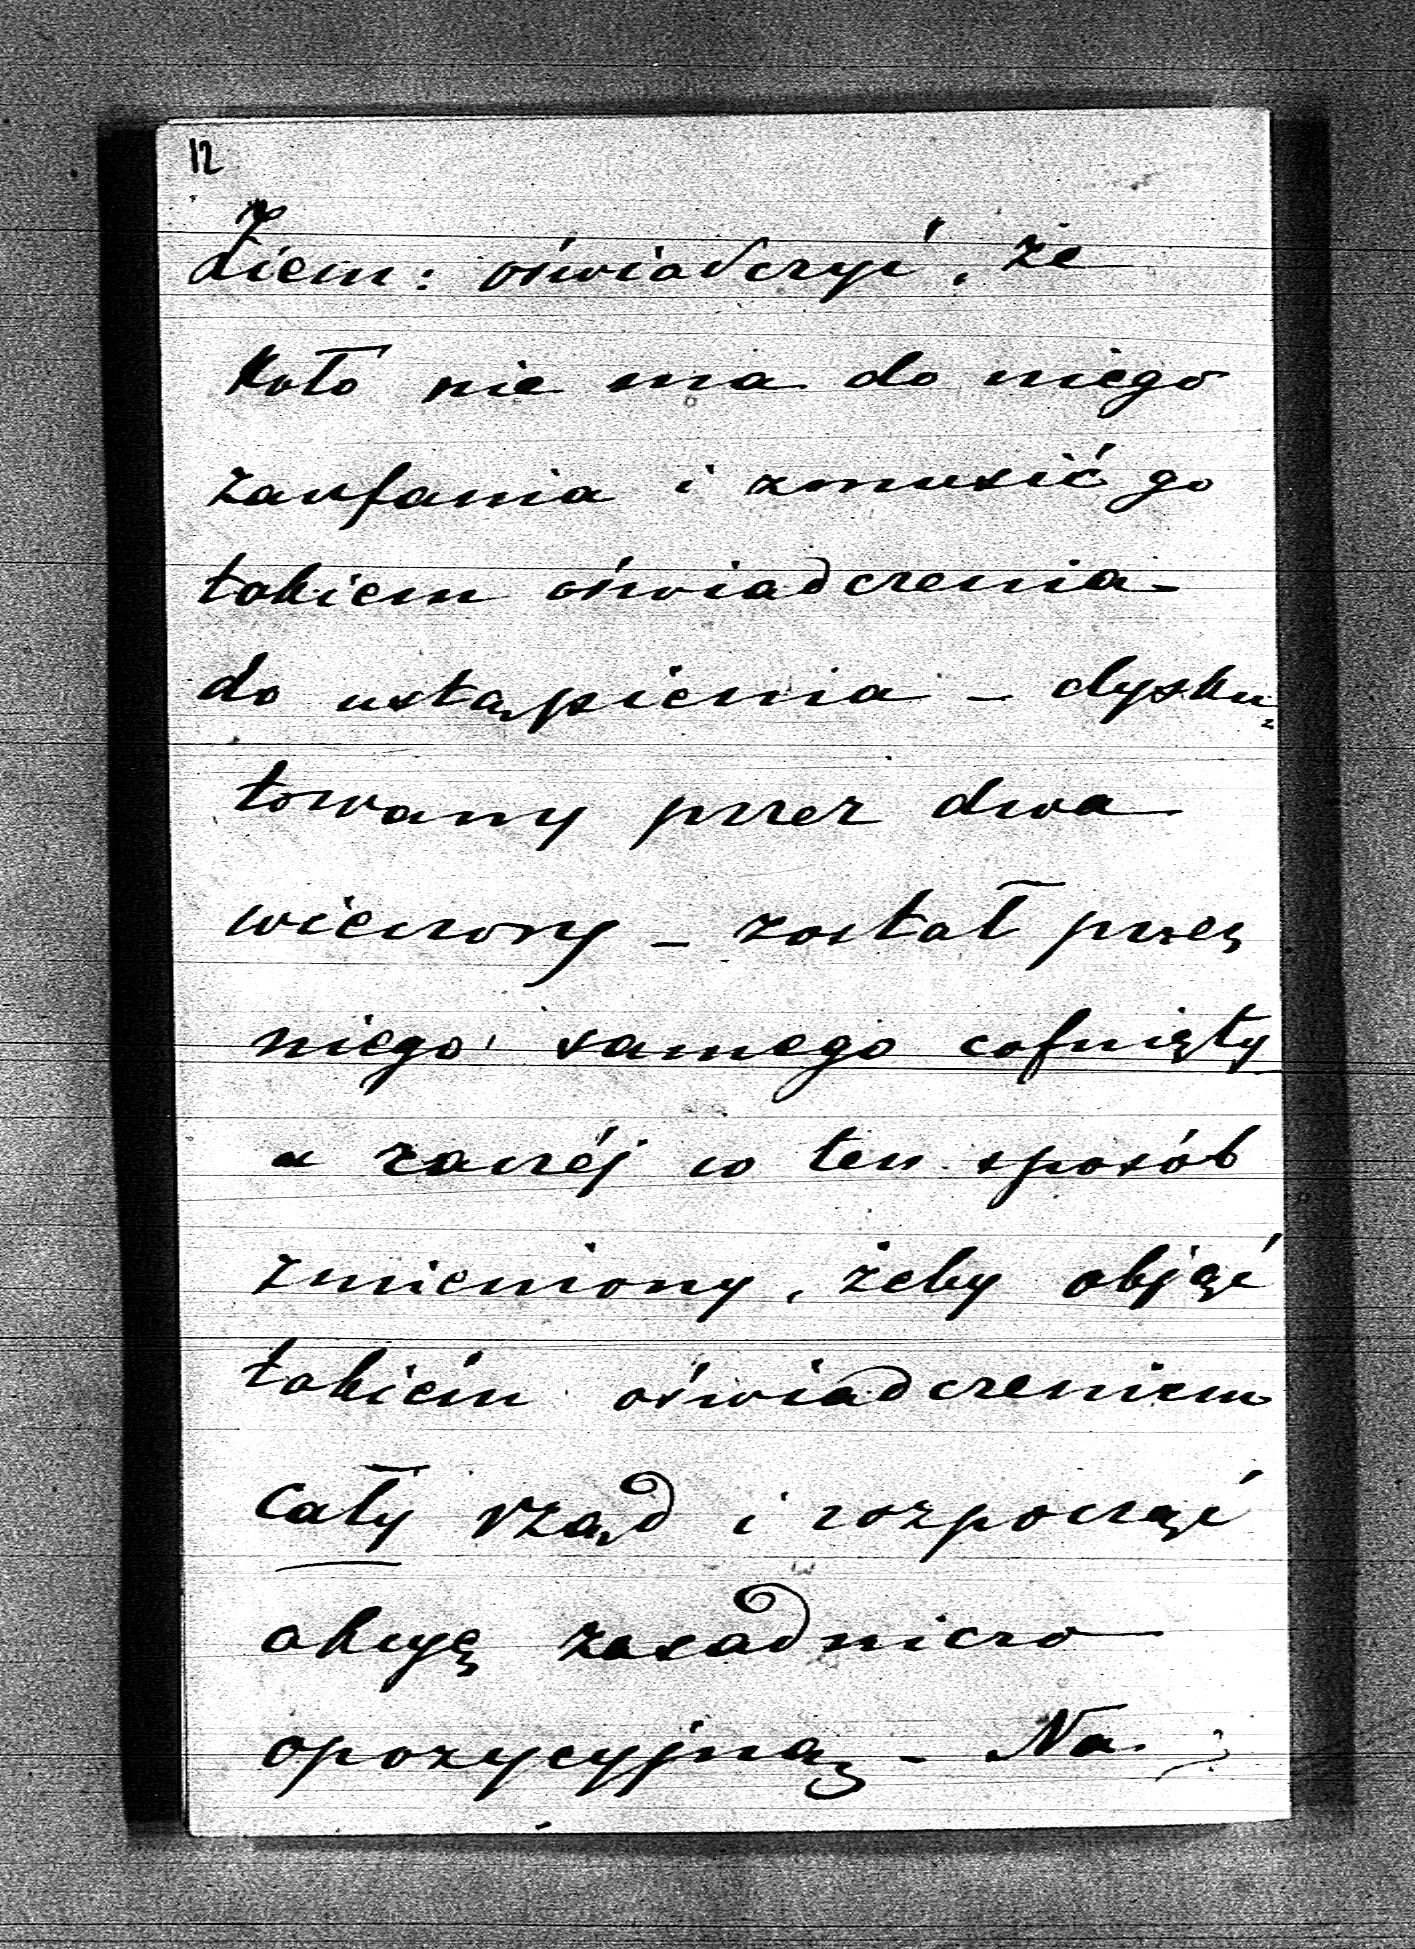 12
Ziem: oświadczyć, że
Koło nie ma do niego
zaufania i zmusić go
takiem oświadczenia
do ustąpienia – dysku-
towany przez dwa
wieczory – został przez
niego samego cofnięty
a raczéj w ten sposób
zmieniony, żeby objąć
takiém oświadczeniem
cały rząd i rozpocząć
akcyę zasadniczo
opozycyjną – Na